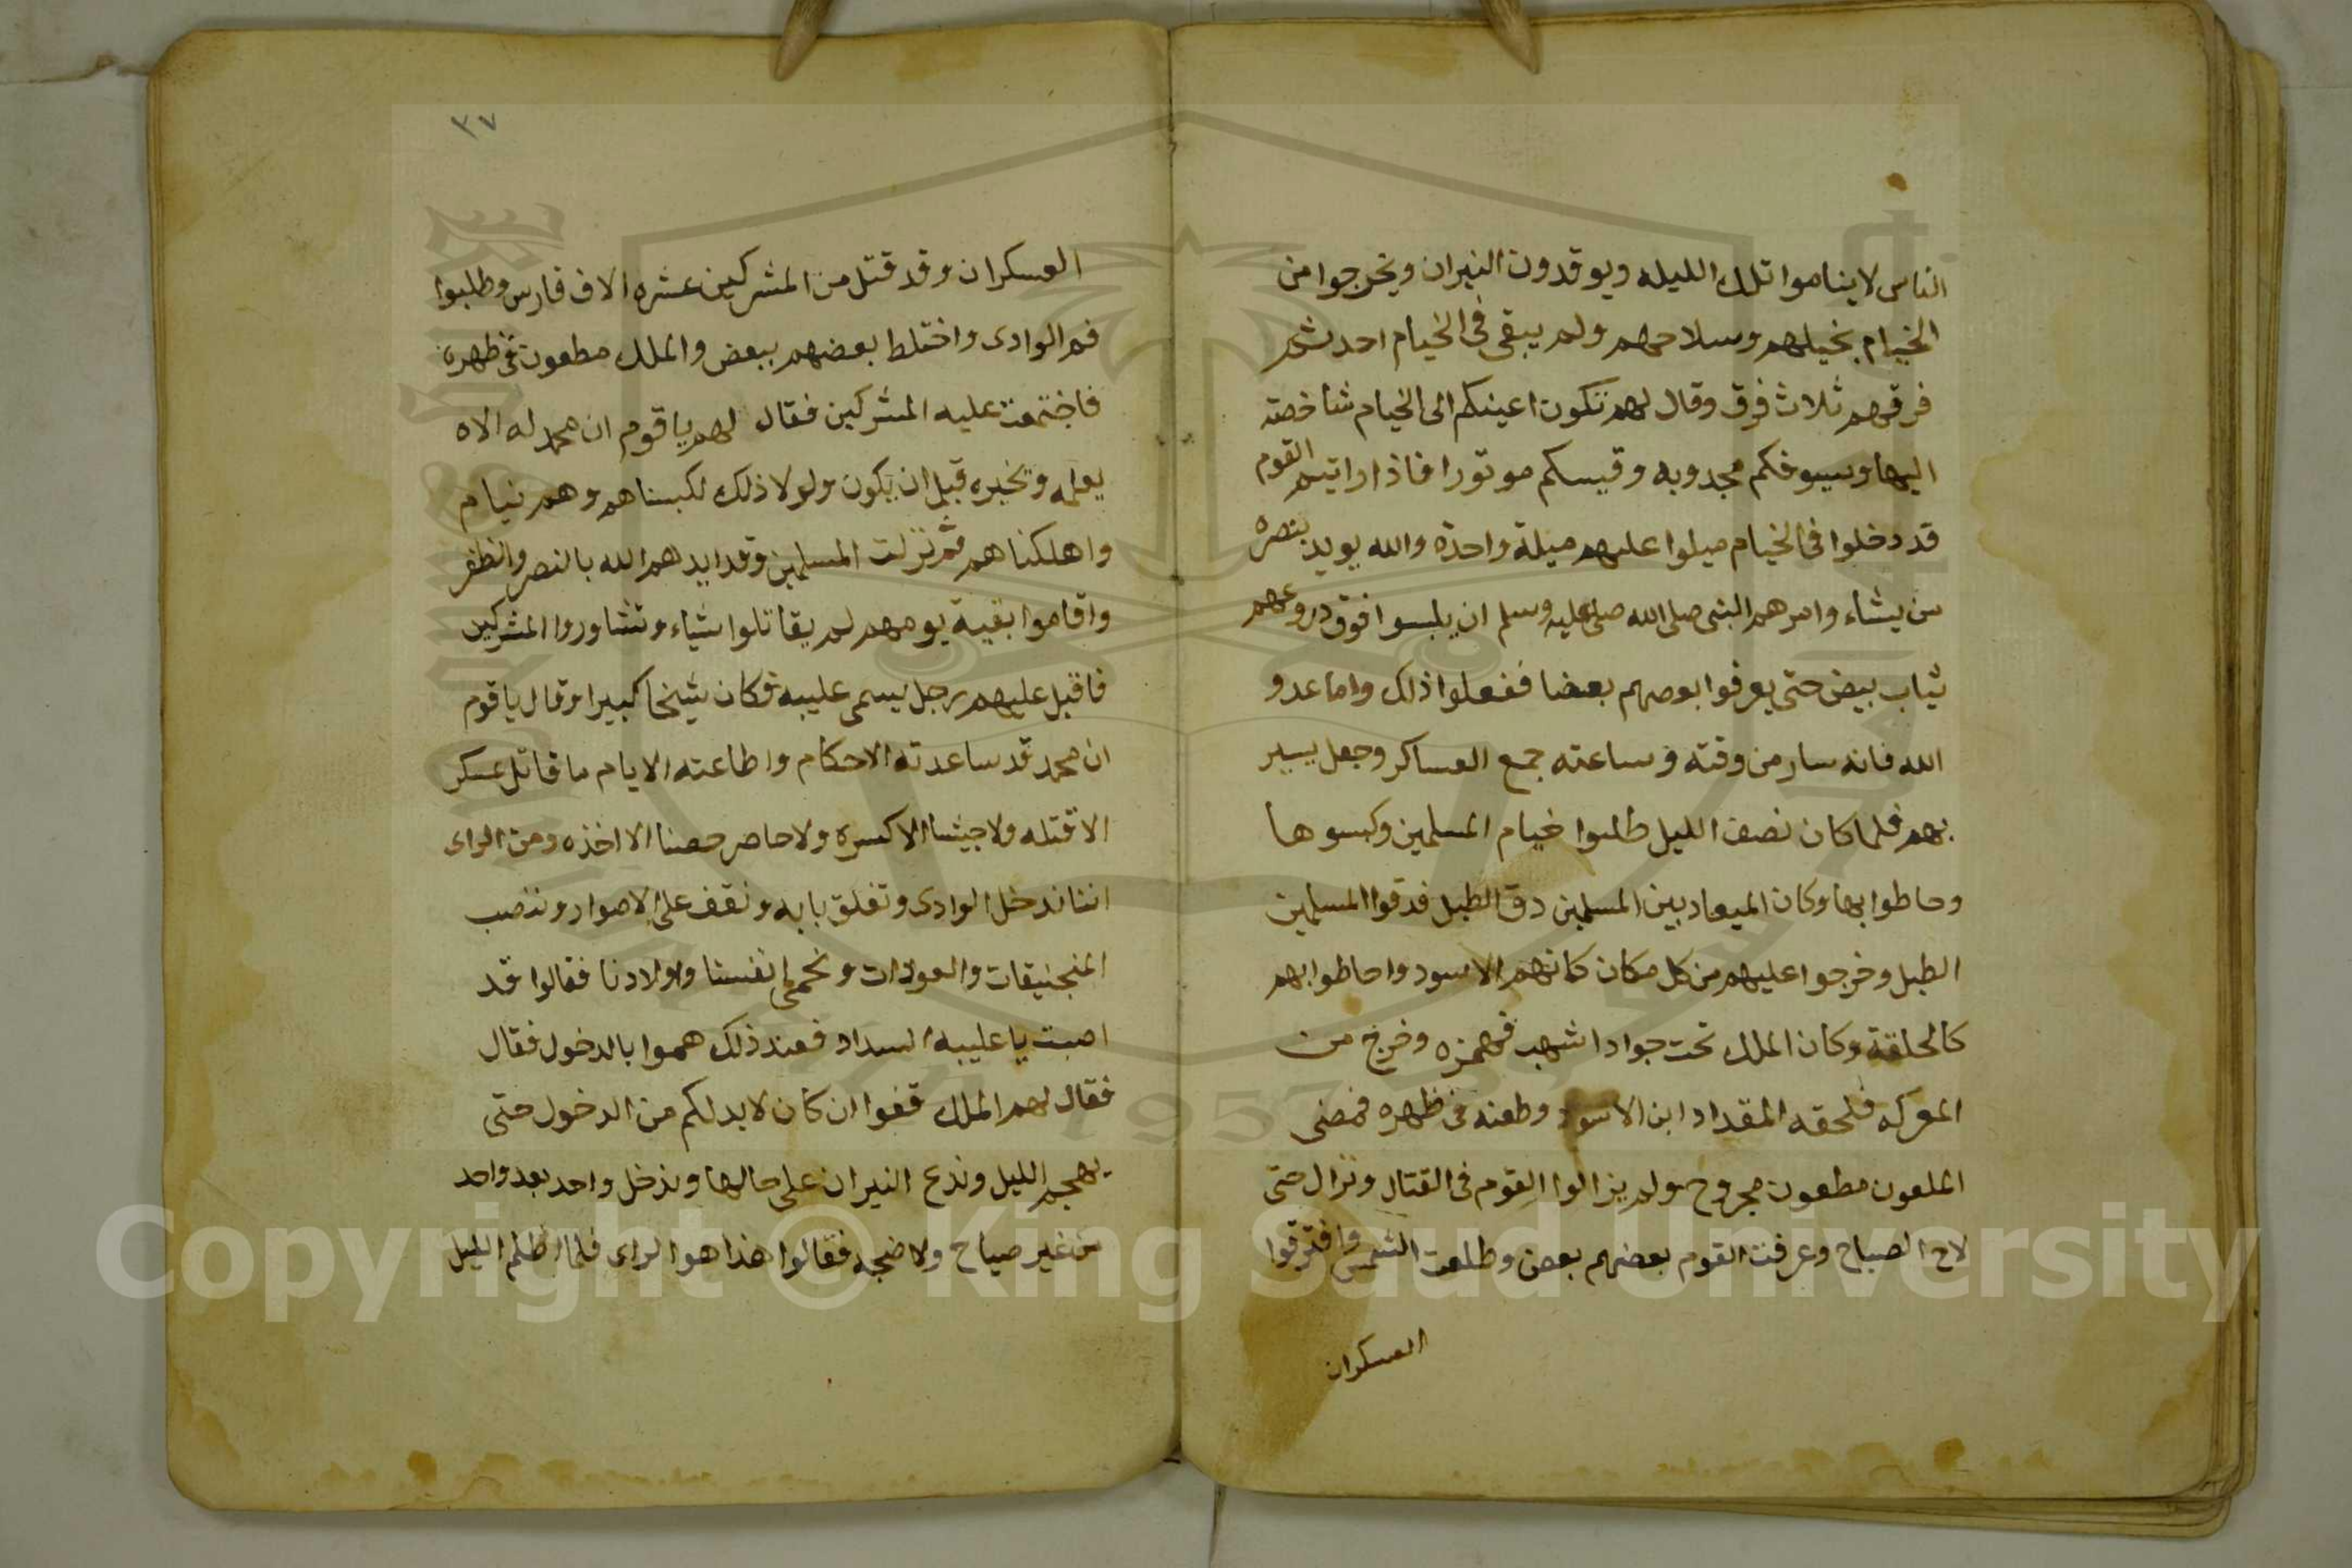 الناس لا يناموا تلك الليله ويوقدون النيران ويخرجوا من
الخيام بخيلهم وسلاحهم ولم يبقى في الخيام احد ثم
فرقهم ثلاث فرق وقال لهم تكون اعينكم الى الخيام شاخصته
اليها وسيوفكم مجدوبه وقيسكم موتورا فاذا رايتم القوم
قد دخلوا في الخيام ميلوا عليهم ميلة واحدة والله يويد بنصره
من يشاء وامرهم النبى صلى الله عليه وسلم ان يلبسوا فوق دروعهم
ثياب بيض حتى يعرفوا بعضهم بعضا ففعلوا ذلك واما عدو
الله فانه سار من وقته وساعته جمع العساكر وجعل يسير
بهم فلما كان نصف الليل طلبوا خيام المسلمين وكبسوها
وحاطوا بها وكان الميعاد بين المسلمين دق الطبل فدقوا المسلمين
الطبل وخرجوا عليهم من كل مكان كانهم الاسود واحاطوا بهم
كالحلقة وكان الملك تحت جوادا شهب فهمزه وخرج من
المعركه فلحقه المقداد ابن الاسود وطعنه في ظهره فمضى
الملعون مطعون مجروح ولم يزالوا القوم فى القتال ونزال حتى
لاح الصباح وعرفت القوم بعضهم بعض وطلعت الشمس وافترقوا
العسكران
٣٧
العسكران وقد قتل من المشركين عشره الاف فارس وطلبوا
فم الوادى واختلط بعضهم ببعض والملك مطعون في ظهره
فاجتمعت عليه المشركين فقال لهم يا قوم ان محمد له الاه
يعلمه وتخبره قبل ان يكون ولولا ذلك لكبسناهم وهم نيام
واهلكناهم ثم نزلت المسلمين وقد ايدهم الله بالنصر والظفر
واقاموا بقية يومهم لم يقاتلوا شياء وتشاوروا المشركين
فاقبل عليهم رجل يسمى عليبه وكان شيخا كبيرا وقال يا قوم
ان محمد قد ساعدته الاحكام واطاعته الايام ما قاتل عسكر
الا قتله ولا جيشا الا كسره ولا حاصر حصنا الا اخذه ومن الراى
اننا ندخل الوادى وتغلق بابه ونقف على الاصوار وننصب
المنجنيقات والعودات ونحمى انفسنا واولادنا فقالوا قد
اصبت يا عليبه السداد فعند ذلك هموا بالدخول فقال
فقال لهم الملك قفوا ان كان لا بد لكم من الدخول حتى
يهجم الليل وندع النيران على حالها وندخل واحد بعد واحد
من غير صياح ولا ضجه فقالوا هذا هو الراى فلما اظلم الليل
Copyright © King Saud University
1957